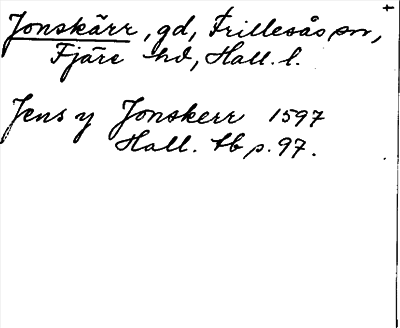 Jonskärr, gd, Frillesås sn,
Fjäre hd, Hall. l.
Jens y Jonskerr 1597
Hall. tb p. 97.